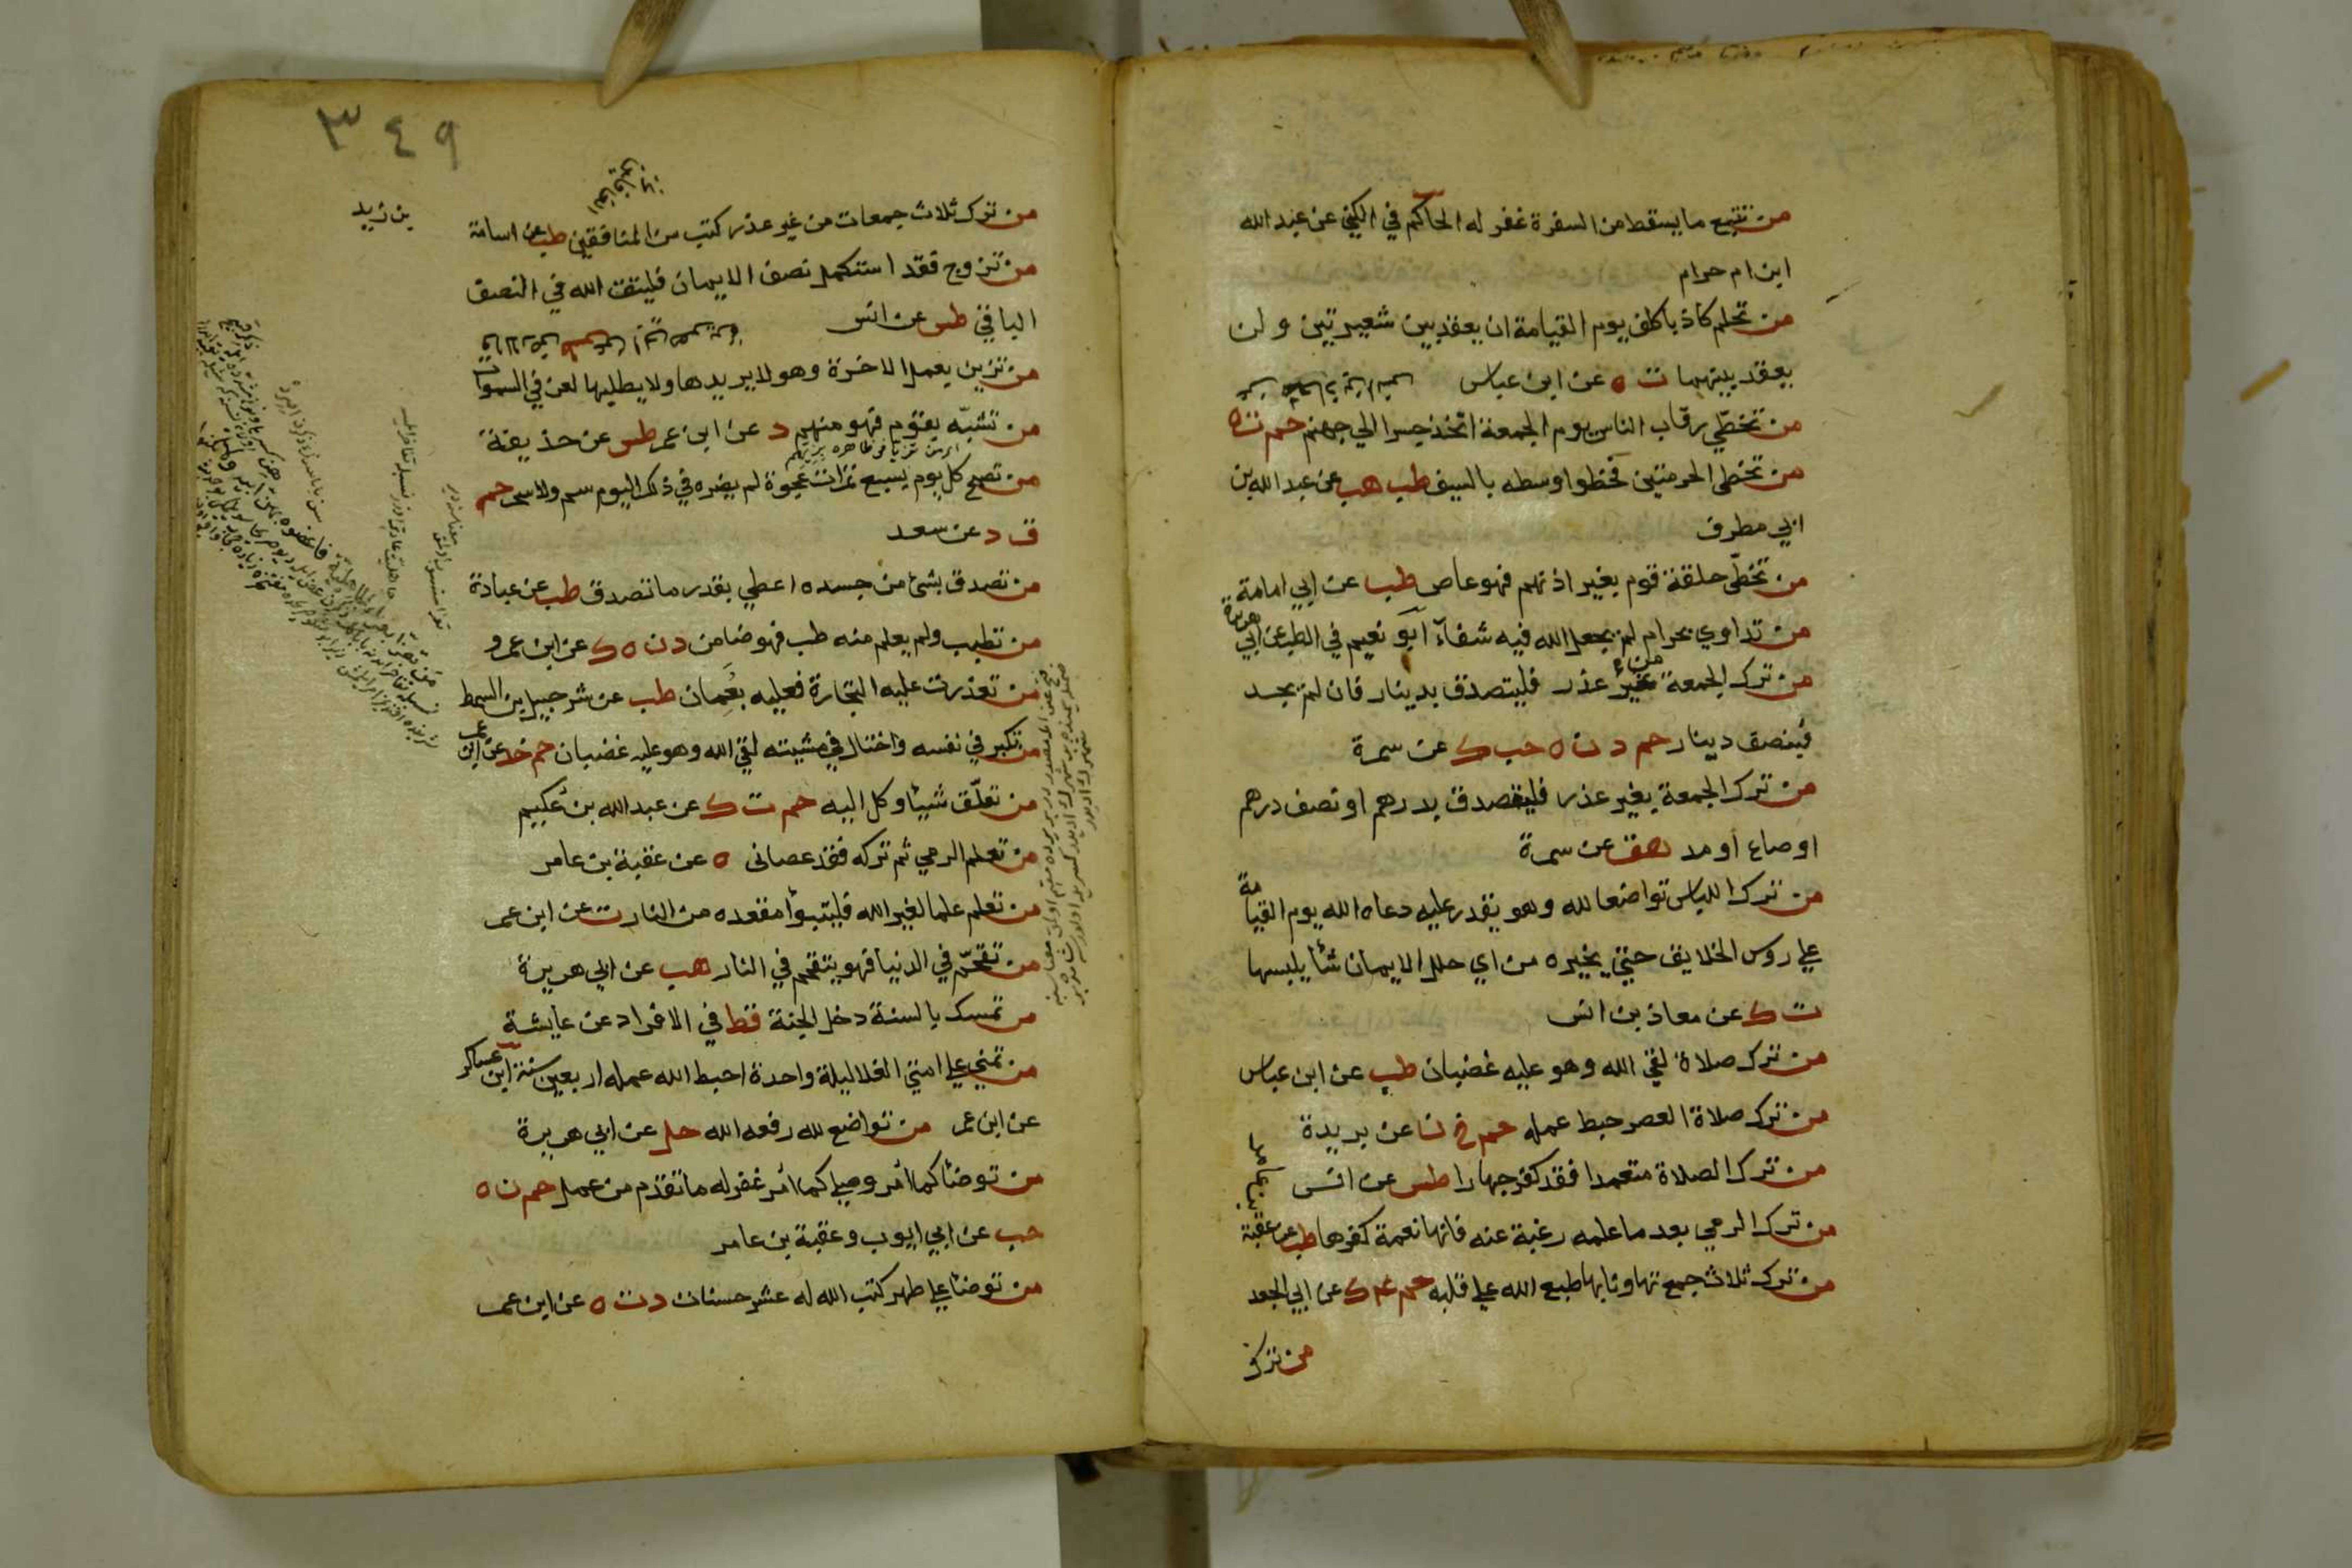 من تتبع ما يسقط من السفرة غفر له الحاكم في الكني عن عبد الله
ابن ام حرام
من تحلم كاذبا كلف يوم القيامة ان يعقد بين شعيرتين ولن
يعقد بينهما ت ه عن ابن عباس
من تخطي رقاب الناس يوم الجمعة اتخذ جسرا الي جهنم حم ت ه
من تخطي الحرمتين فخطوا وسطه بالسيف طب هب عن عبد الله بن
ابي مطرف
من تخطّي حلقة قوم بغير اذنهم فهو عاص طب عن ابي امامة
من تداوي بحرام لم يجعل الله فيه شفآء ابو نعيم في الطب عن ابي هريرة
من ترك الجمعة من غير عذر فليتصدق بدينار فان لم يجد
فبنصف دينار حم د ن ه حب ك عن سمرة
من ترك الجمعة بغير عذر فليتصدق بدرهم او نصف درهم
او صاع او مد هق عن سمرة
من ترك اللباس تواضعا لله وهو يقدر عليه دعاه الله يوم القيامة
علي روس الخلايق حتي يخيره من اي حلل الايمان شأ يلبسها
ت ك عن معاذ بن انس
من ترك صلاة لقي الله وهو عليه غضبان طب عن ابن عباس
من ترك صلاة العصر حبط عمله حم خ ن عن بريدة
من ترك الصلاة متعمدا فقد كفر جهارا طس عن انس
من ترك الرمي بعد ما علمه رغبة عنه فانها نعمة كفرها طب عن عقبة
بن عامر
من ترك ثلاث جمع تهاونا بها طبع الله علي قلبه حم عم ك عن ابي الجعد
من ترك
٣٤٩
من ترك ثلاث جمعات من غير عذر كتب من المنافقين طب عن اسامة
بن زيد
من تزوج فقد استكمل نصف الايمان فليتق الله في النصف
الباقي طس عن انس
من تزين بعمل الاخرة وهو لا يريدها ولا يطلبها لعن في السموات
من تشبّه بقوم فهو منهم د عن ابن عمر طس عن حذيفة
من تصبح كل يوم بسبع تمرات عجوة لم يضره في ذلك اليوم سم ولا سحر حم
ق د عن سعد
من تصدق بشئ من جسده اعطي بقدر ما تصدق طب عن عبادة
من تطبب ولم يعلم منه طب فهو ضامن د ن ه ك عن ابن عمرو
من تعذرت عليه التجارة فعليه بعُمان طب عن شرحبيل بن السمط
من تكبر في نفسه واختال في مشيته لقي الله وهو عليه غضبان حم خد عن ابن عمر
من تعلّق شيئا وكل اليه حم ت ك عن عبد الله بن عكيم
من تعلم الرمي ثم تركه فقد عصاني ه عن عقبة بن عامر
من تعلم علما لغير الله فليتبوأ مقعده من النار ت عن ابن عمر
من تقحّم في الدنيا فهو يتقحم في النار هب عن ابي هريرة
من تمسك بالسنة دخل الجنة قط في الافراد عن عايشة
من تمني علي امتي الغلا ليلة واحدة احبط الله عمله اربعين سنة ابن عساكر
عن ابن عمر من تواضع لله رفعه الله حل عن ابي هريرة
من توضأ كما امر وصلي كما امر غفر له ما تقدم من عمل حم ن ه
حب عن ابي ايوب وعقبة بن عامر
من توضأ علي طهر كتب الله له عشر حسنات د ت ه عن ابن عمر